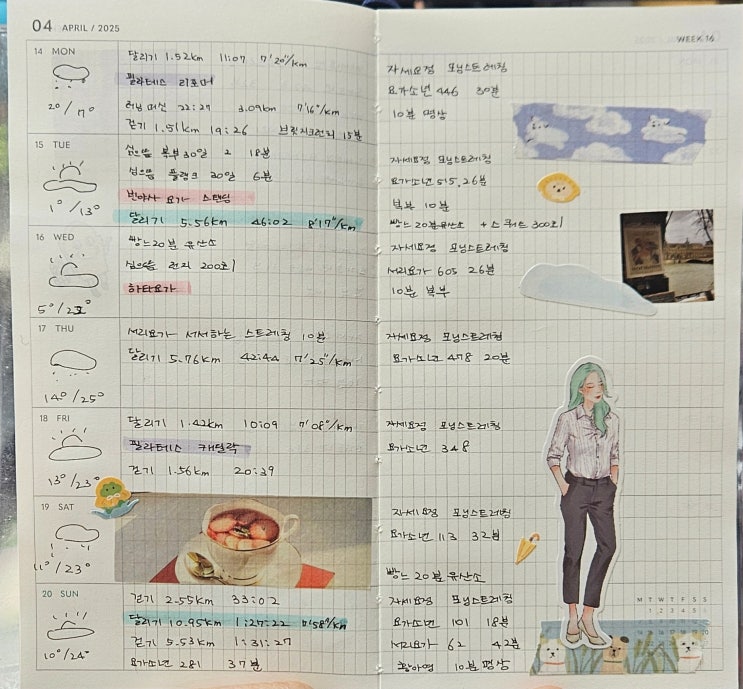 04 APRIL / 2025
14 MON
달리기 1.52km 11:07 7'20"/km
필라테스 리포머
20/7°
러닝머신 22:27 3.09km 7'16"/km
걷기 1.51km 19:26 브릿지크런치 15분
15 TUE
심으뜸 복부 30일 2 18분
심으뜸 플랭크 30일 6분
빈야사 요가 스탠딩
1°/13°
달리기 5.56km 46:02 8'17"/km
16 WED
빵느 20분 유산소
심으뜸 런지 200회
하타요가
5°/23°
17 THU
서리요가 서서하는 스트레칭 10분
달리기 5.76km 42:44 7'25"/km
14°/25°
18 FRI
달리기 1.42km 10:09 7'08"/km
필라테스 캐딜락
걷기 1.56km 20:39
13°/23°
19 SAT
11°/23°
20 SUN
걷기 2.55km 33:02
달리기 10.95km 1:27:22 7'58"/km
걷기 5.53km 1:31:27
10°/24°
요가소년 281 37분
WEEK 16
자세요정 모닝스트레칭
요가소년 446 30분
10분 명상
자세요정 모닝스트레칭
요가소년 515, 26분
복부 10분
빵느 20분 유산소 + 스쿼트 300회
자세요정 모닝스트레칭
서리요가 605 26분
10분 복부
자세요정 모닝스트레칭
요가소년 478 20분
자세요정 모닝스트레칭
요가소년 348
자세요정 모닝스트레칭
요가소년 113 32분
빵느 20분 유산소
자세요정 모닝스트레칭
요가소년 101 18분
서리요가 62 42분
황아영 10분 명상
M T W T F S S